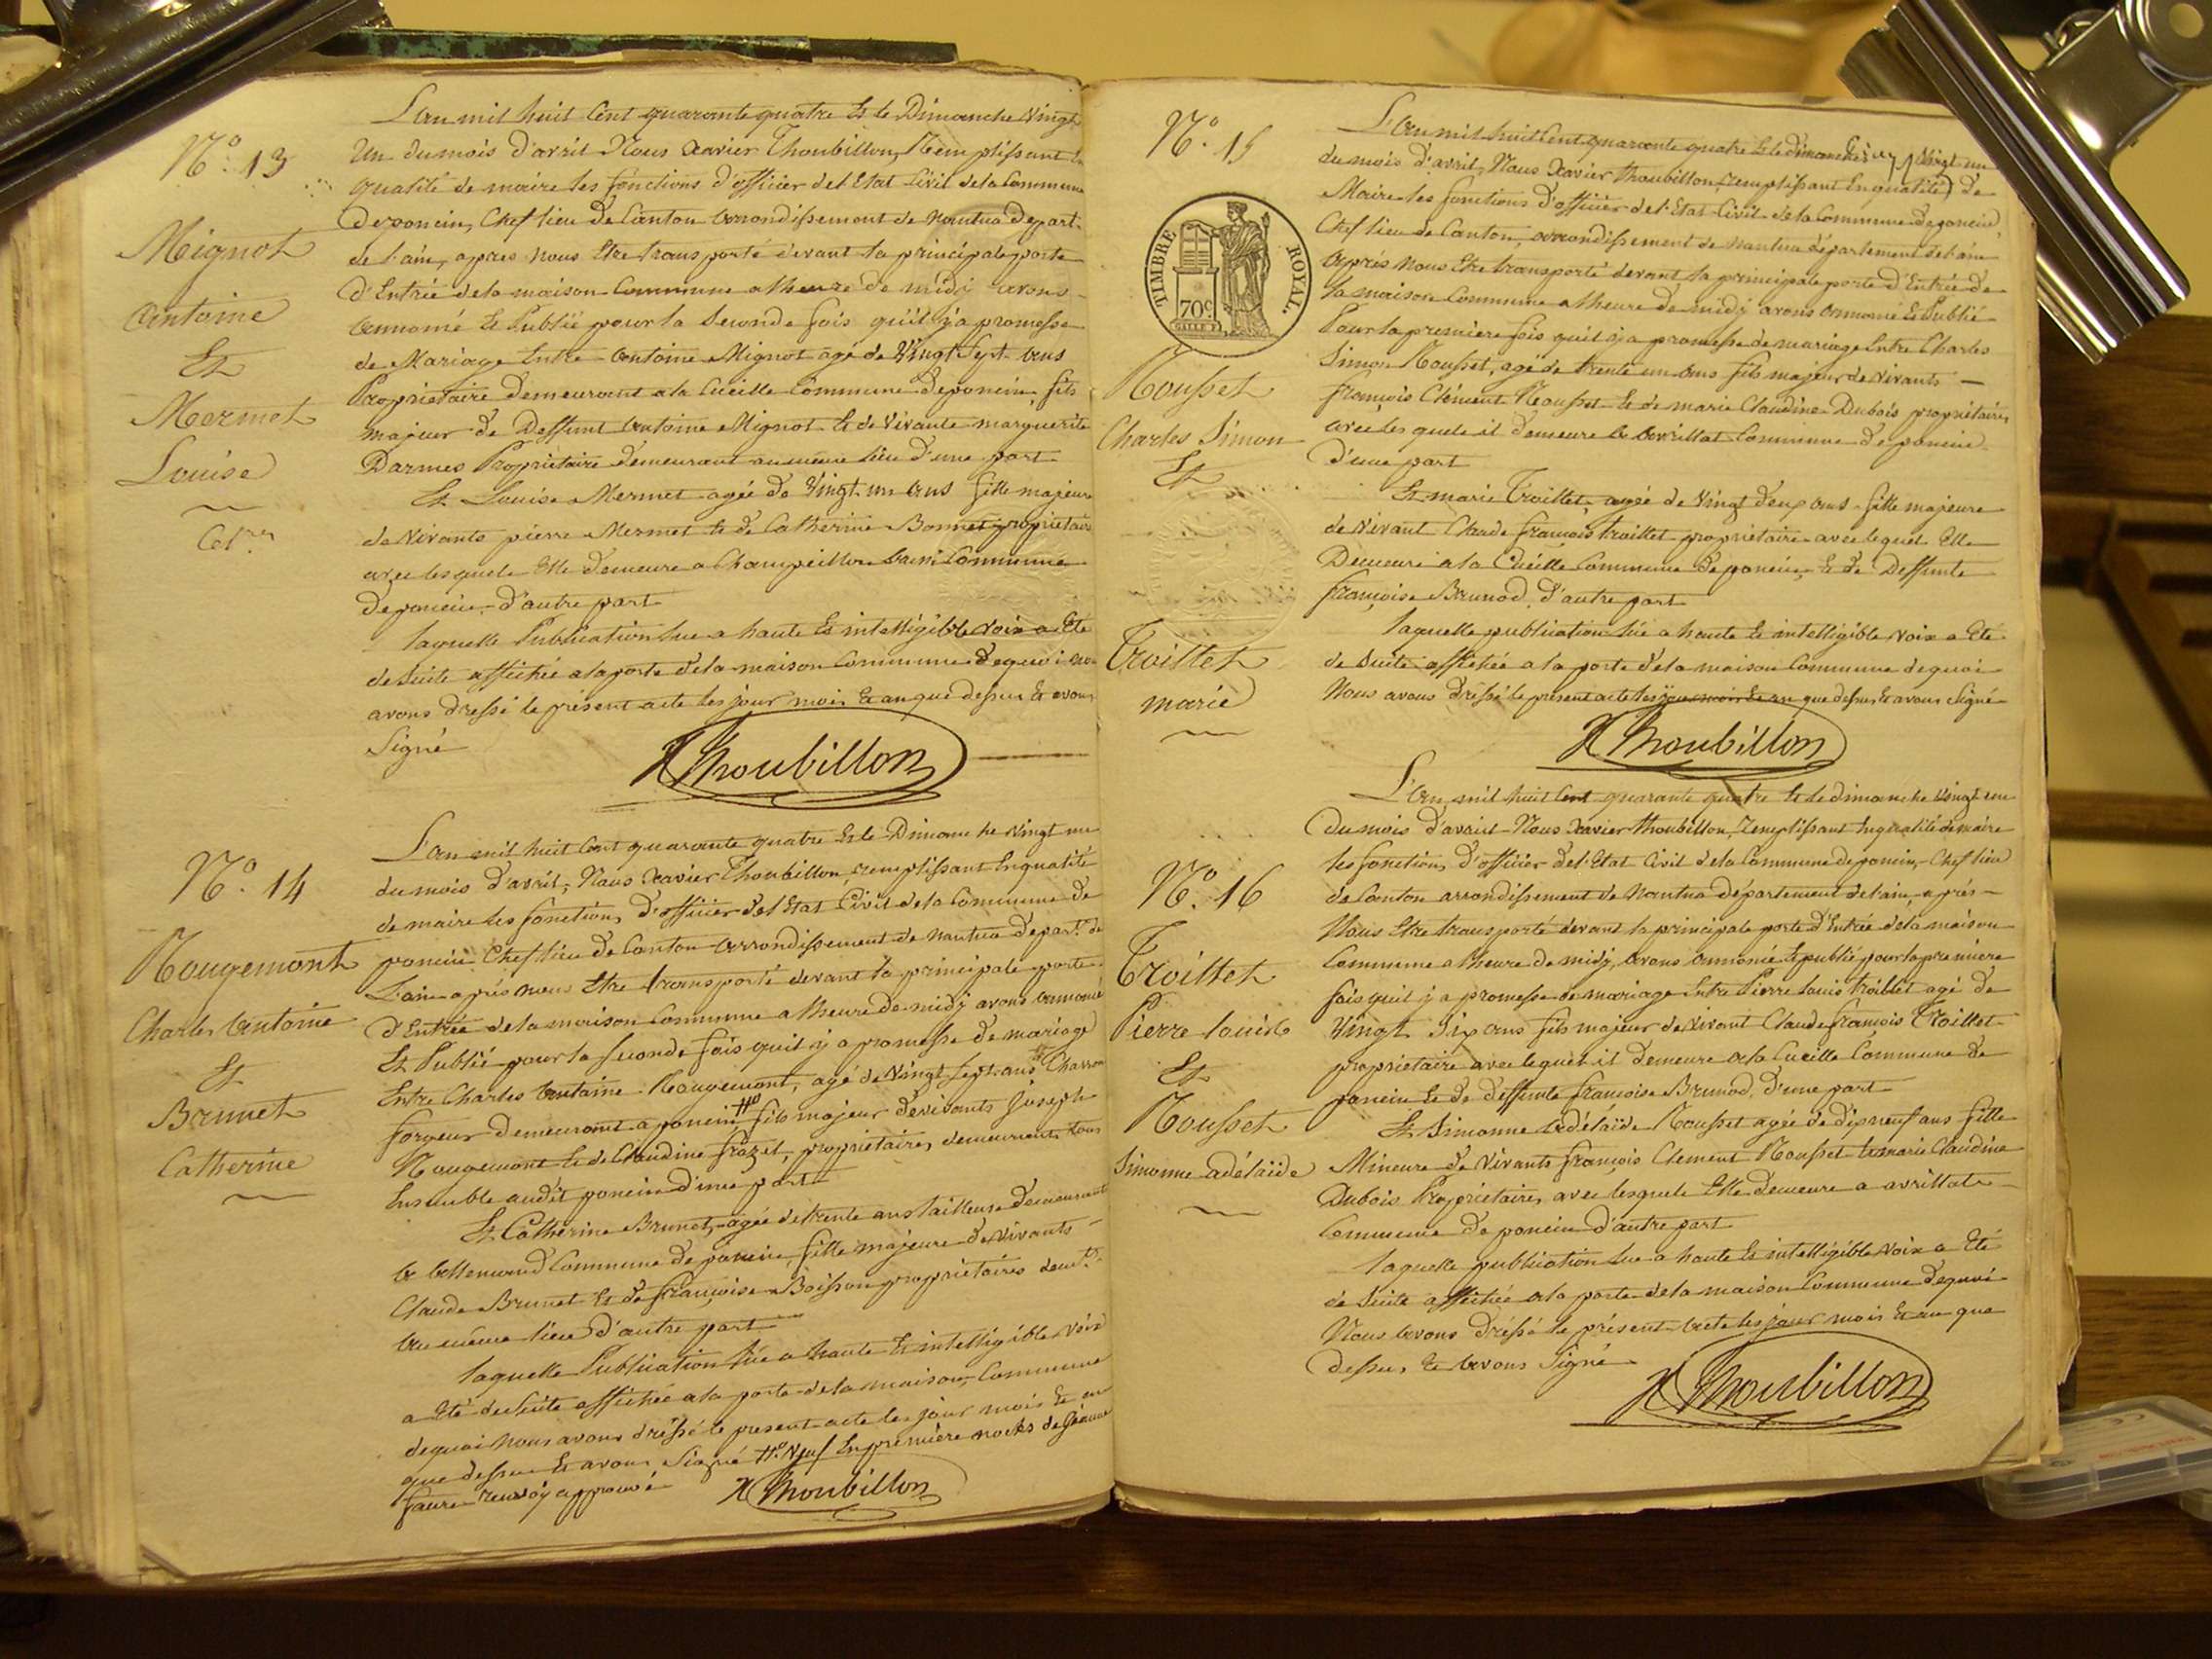 N.° 13
Mignot
Antoine
Et
Mermet
Louise
L'an mil huit Cent quarante quatre Et le Dimanche Vingt
Un du mois d'avril Nous Xavier Thoubillon, Remplissant En
qualité de maire les fonctions d'officier de l'Etat Civil de la Commune
de poncin, Chef lieu de Canton arrondissement de Nantua Depart.
de l'ain, apres nous Etre transporté devant la principale porte
d'Entrée de la maison Commune a l'heure de midy avons
annoncé Et Publié pour la Seconde fois qu'il y a promesse
de Mariage Entre Antoine Mignot agé de Vingt Sept ans
Proprietaire demeurant a la Cueille Commune de poncin, fils
majeur de Deffunt Antoine Mignot Et de Vivante marguerite
Darmes Proprietaire demeurant au même lieu d'une part
Et Louise Mermet agée de Vingt un ans fille majeure
de Vivants pierre Mermet Et de Catherine Bonnet proprietaires
avec lesquels Elle demeure a Champeillon Commune
de poncin, d'autre part
laquelle Publication lue a haute Et intelligible voix a Eté
de Suite affichée a la porte de la maison Commune de quoi nous
avons dressé le présent acte les jour mois Et an que dessus Et avons
Signé
XThoubillon
N.° 14
Rougemont
Charles Antoine
Et
Brunet
Catherine
L'an mil huit Cent quarante quatre Et le Dimanche Vingt un
du mois d'avril, Nous Xavier Thoubillon, remplissant En qualité
de maire les fonctions d'officier de l'Etat Civil de la Commune de
poncin Chef lieu de Canton arrondissement de nantua depart.t de
L'ain après nous Etre transporté devant la principale porte
d'Entrée de la maison Commune a l'heure de midy avons annoncé
Et Publié pour la Seconde fois qu'il y a promesse de mariage
Entre Charles Antoine Rougemont, agé de Vingt Sept ans Charron
forgeur demeurant a poncin fils majeur de vivants Joseph
Rougemont Et de Claudine frozet, proprietaires demeurants tous
Ensemble audit poncin d'une part
Et Catherine Brunet, agée de trente ans tailleuse demeurant
a allemand Commune de poncin, fille majeure de Vivants
Claude Brunet Et de françoise Boisson proprietaires dem.ts
au même lieu d'autre part
laquelle Publication lue a haute Et intelligible voix
a Eté de Suite affichée a la porte de la maison Commune
de quoi nous avons dréssé le present acte les jour mois Et an
que dessus Et avons Signé Neuf En première noces de
faure renvoy approuvé
XThoubillon
N.° 15
TIMBRE ROYAL.
70c
Rousset
Charles Simon
Et
Troillet
marie
L'an mil huit Cent quarante quatre Et le dimanche Vingt un
du mois d'avril, Nous Xavier Thoubillon, remplissant En qualité de
Maire les fonctions d'officier de l'Etat Civil de la Commune de poncin,
Chef lieu de Canton, arrondissement de nantua département de l'ain
après nous Etre transporté devant la principale porte d'Entrée de
la maison Commune a l'heure de midy avons annoncé Et Publié
Pour la premiere fois qu'il y a promesse de mariage Entre Charles
Simon Rousset, agé de trente un ans fils majeur de Vivants
françois Clément Rousset Et de marie Claudine Dubois propriétaires
avec lesquels il demeure a avrillat Commune de poncin
d'une part
Et marie Troillet, agée de Vingt deux ans fille majeure
de Vivant Claude françois troillet proprietaire avec lequel Elle
Demeure a la Cueille Commune de poncin, Et de Deffunte
françoise Brunod, d'autre part
laquelle publication lue a haute Et intelligible voix a Eté
de Suite affichée a la porte de la maison Commune de quoi
Nous avons dréssé le présent acte les jour mois Et an que dessus Et avons Signé
XThoubillon
N.° 16
Troillet
Pierre louis
Et
Rousset
Simonne adélaïde
L'an mil huit Cent quarante quatre Et le dimanche Vingt un
du mois d'avril Nous Xavier Thoubillon, remplissant En qualité de maire
les fonctions d'officier de l'Etat Civil de la Commune de poncin, Chef lieu
de Canton arrondissement de Nantua département de l'ain, après
Nous Etre transporté devant la principale porte d'Entrée de la maison
Commune a l'heure de midy, avons annoncé Et publié pour la première
fois qu'il y a promesse de mariage Entre Pierre louis troillet agé de
Vingt Six ans fils majeur de vivant Claude françois Troillet
proprietaire avec lequel il demeure a la Cueille Commune de
poncin Et de deffunte françoise Brunod, d'une part
Et Simonne adélaïde Rousset agée de dix neuf ans fille
Mineure de Vivants françois Clement Rousset Et marie Claudine
Dubois Proprietaires, avec lesquels Elle demeure a avrillat
Commune de poncin d'autre part
laquelle publication lue a haute Et intelligible voix a Eté
de Suite affichée a la porte de la maison Commune de quoi
Nous avons dréssé le présent acte les jour mois Et an que
dessus, Et avons Signé
XThoubillon